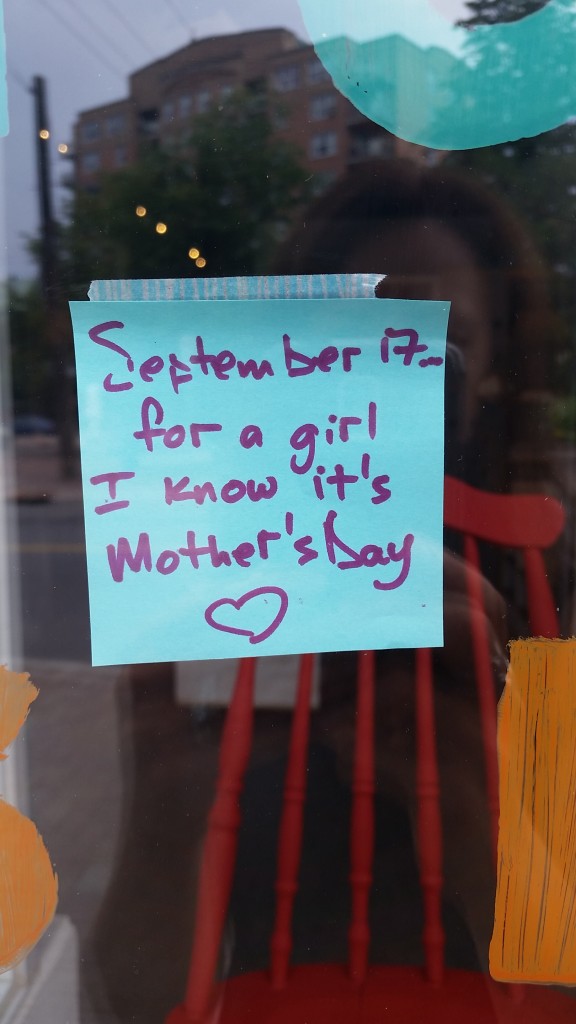 September 17...
for a girl
I know it's
Mother's Day